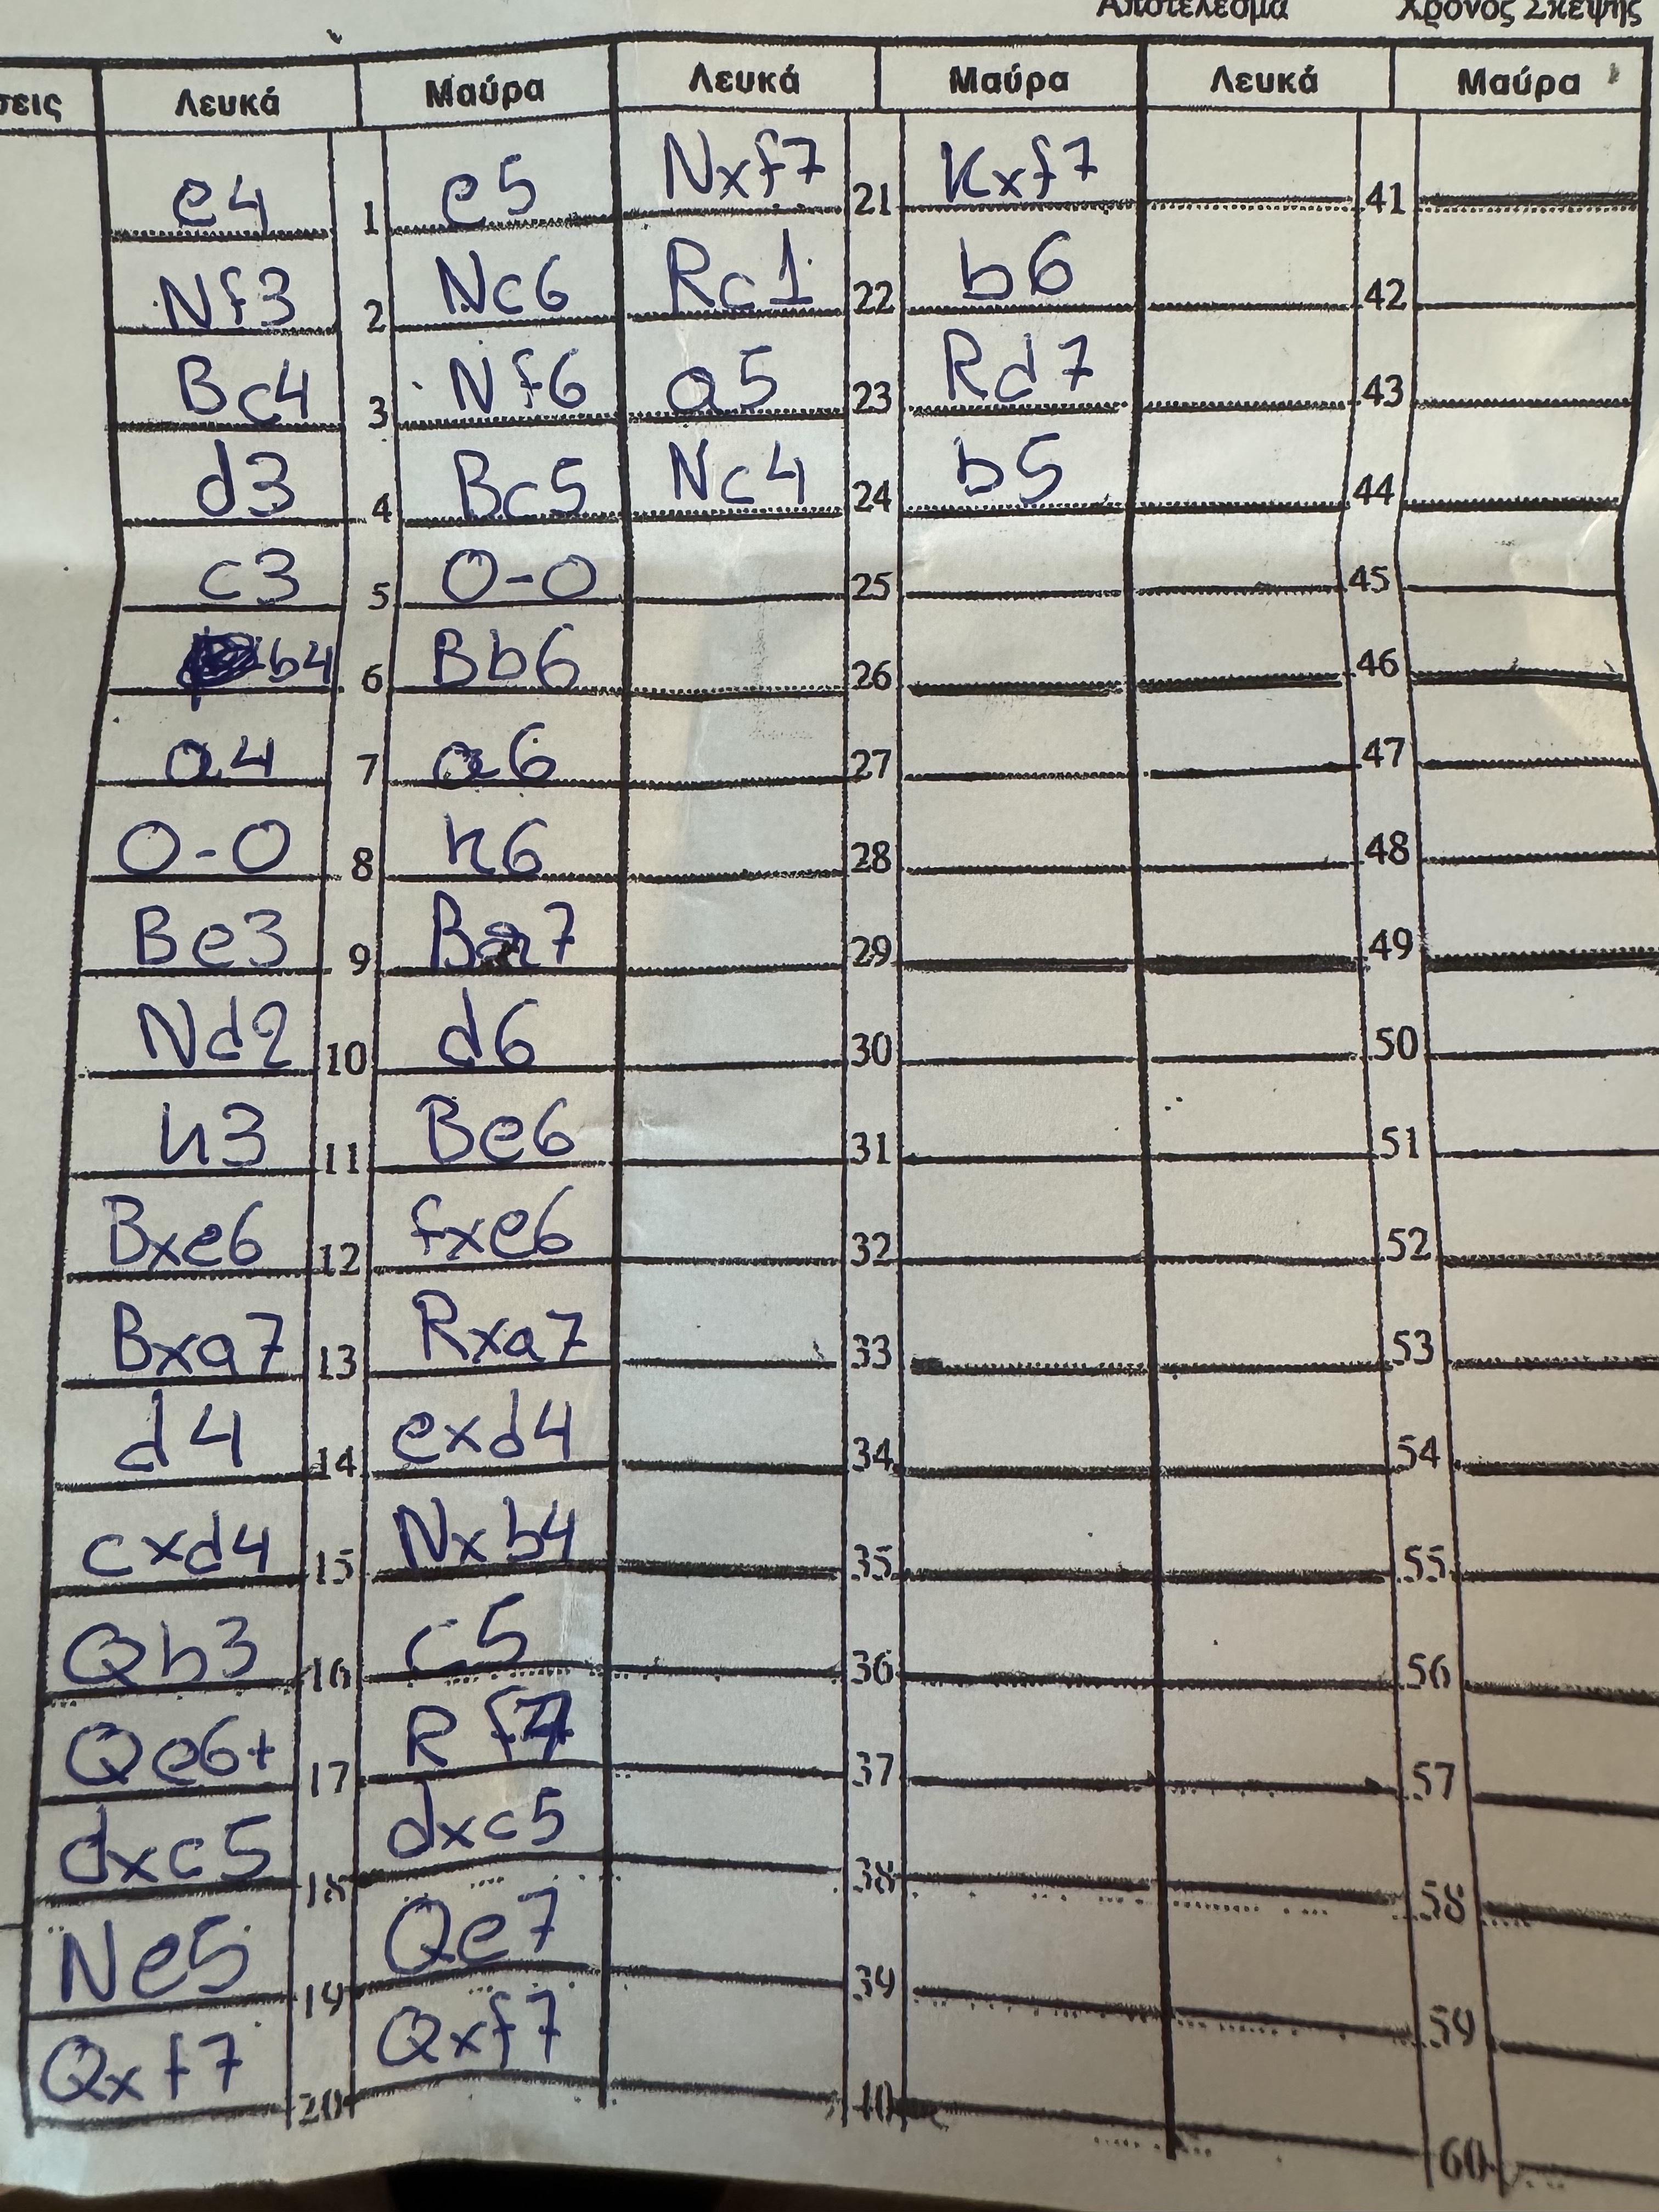 Αποτέλεσμα Χρόνος Σκέψης
σεις Λευκά Μαύρα Λευκά Μαύρα Λευκά Μαύρα
e4 1 e5 Nxf7 21 Kxf7 41
Nf3 2 Nc6 Rc1 22 b6 42
Bc4 3 Nf6 a5 23 Rd7 43
d3 4 Bc5 Nc4 24 b5 44
c3 5 O-O 25 45
b4 6 Bb6 26 46
a4 7 a6 27 47
O-O 8 h6 28 48
Be3 9 Ba7 29 49
Nd2 10 d6 30 50
h3 11 Be6 31 51
Bxe6 12 fxe6 32 52
Bxa7 13 Rxa7 33 53
d4 14 exd4 34 54
cxd4 15 Nxb4 35 55
Qb3 16 c5 36 56
Qe6+ 17 Rf7 37 57
dxc5 18 dxc5 38 58
Ne5 19 Qe7 39 59
Qxf7 20 Qxf7 40 60